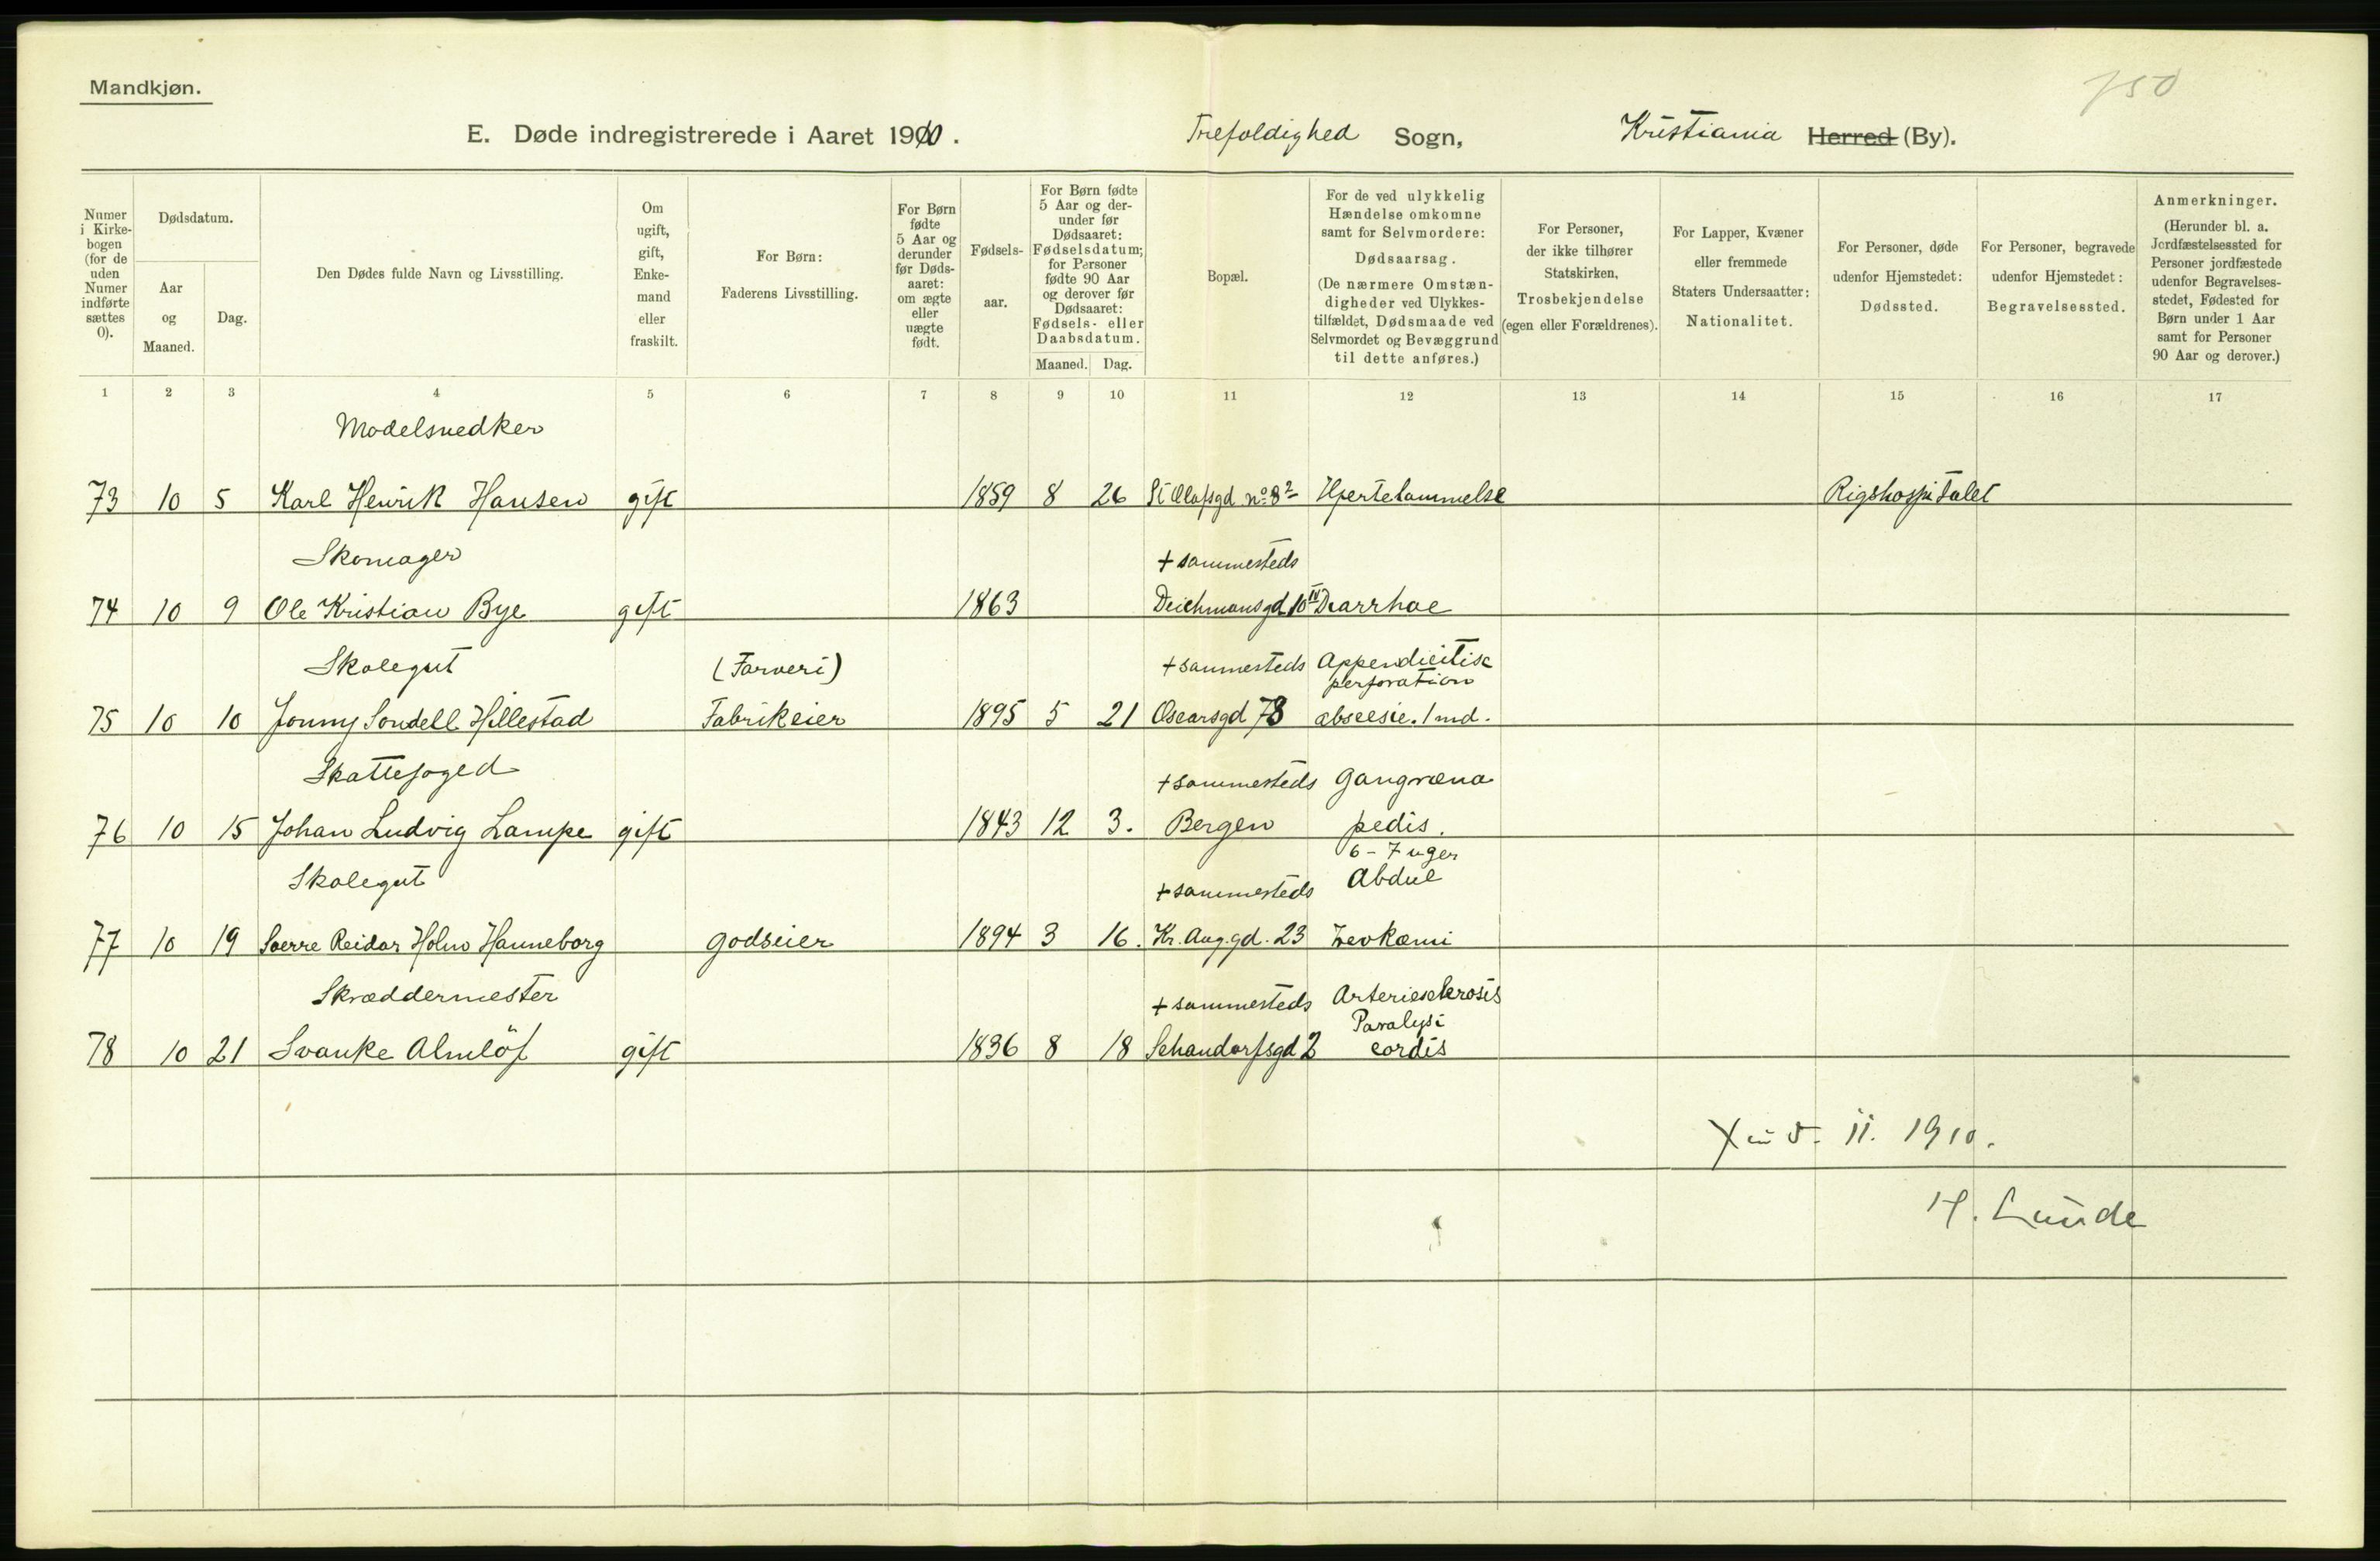 Mandkjøn.
750
E. Døde indregistrerede i Aaret 1910. Trefoldighed Sogn, Kristiania Herred (By).
Numer i Kirkebogen (for de uden Numer indførte sættes 0).
Dødsdatum.
Aar og Maaned.
Dag.
Den Dødes fulde Navn og Livsstilling.
Om ugift, gift, Enkemand eller fraskilt.
For Børn: Faderens Livsstilling.
For Børn fødte 5 Aar og derunder før Dødsaaret: om ægte eller uægte født.
Fødselsaar.
For Børn fødte 5 Aar og derunder før Dødsaaret: Fødselsdatum; for Personer fødte 90 Aar og derover før Dødsaaret: Fødsels- eller Daabsdatum.
Maaned. Dag.
Bopæl.
For de ved ulykkelig Hændelse omkomne samt for Selvmordere: Dødsaarsag. (De nærmere Omstændigheder ved Ulykkestilfældet, Dødsmaade ved Selvmordet og Bevæggrund til dette anføres.)
For Personer, der ikke tilhører Statskirken, Trosbekjendelse (egen eller Forældrenes).
For Lapper, Kvæner eller fremmede Staters Undersaatter: Nationalitet.
For Personer, døde udenfor Hjemstedet: Dødssted.
For Personer, begravede udenfor Hjemstedet: Begravelsessted.
Anmerkninger. (Herunder bl. a. Jordfæstelsessted for Personer jordfæstede udenfor Begravelsesstedet, Fødested for Børn under 1 Aar samt for Personer 90 Aar og derover.)
1 2 3 4 5 6 7 8 9 10 11 12 13 14 15 16 17
Modelsnedker
73 10 5 Karl Henrik Hansen gift 1859 8 26 St Olafsgd no 8² Hjertelammelse Rigshospitalet
Skomager + sammesteds
74 10 9 Ole Kristian Bye gift 1863 Deichmansgd 10 IV Diarrhoe
Skolegut (Farveri) + sammesteds Appendicitis
perforation
75 10 10 Jonny Hillestad Fabrikeier 1895 5 21 Oscarsgd 78 1 md.
Skattefoged + sammesteds Gangræna
76 10 15 Johan Ludvig Lampe gift 1843 12 3. Bergen pedis.
6-7 uger
Skolegut + sammesteds
77 10 19 Sverre Reidar Holm Hanneborg Godseier 1894 3 16. Kr. Aug. gd. 23 Levkæmi
Skræddermester + sammesteds Arteriesclerosis
Paralysi
78 10 21 Svanke Almlöf gift 1836 8 18 Schandorfsgd 2 cordis
11. 1910.
H. Lunde